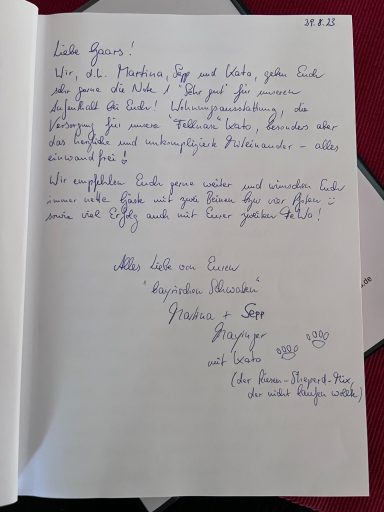 29.8.23
Liebe Gaars!
Wir, d.h. Martina, Sepp und Kato, geben Euch
sehr gerne die Note 1 "Sehr gut" für unseren
Aufenthalt bei Euch! Wohnungsausstattung, die
Versorgung für unsere "Fellnase" Kato, besonders aber
das herzliche und unkomplizierte Miteinander – alles
einwandfrei!
Wir empfehlen Euch gerne weiter und wünschen Euch
immer nette Gäste mit zwei Beinen bzw vier Pfoten
sowie viel Erfolg auch mit Eurer zweiten FeWo!
Alles Liebe von Euren
"bayrischen Schwaben"
Martina + Sepp
mit Kato
(der Riesen-Sheperd-Mix,
der nicht laufen wollte)
.de